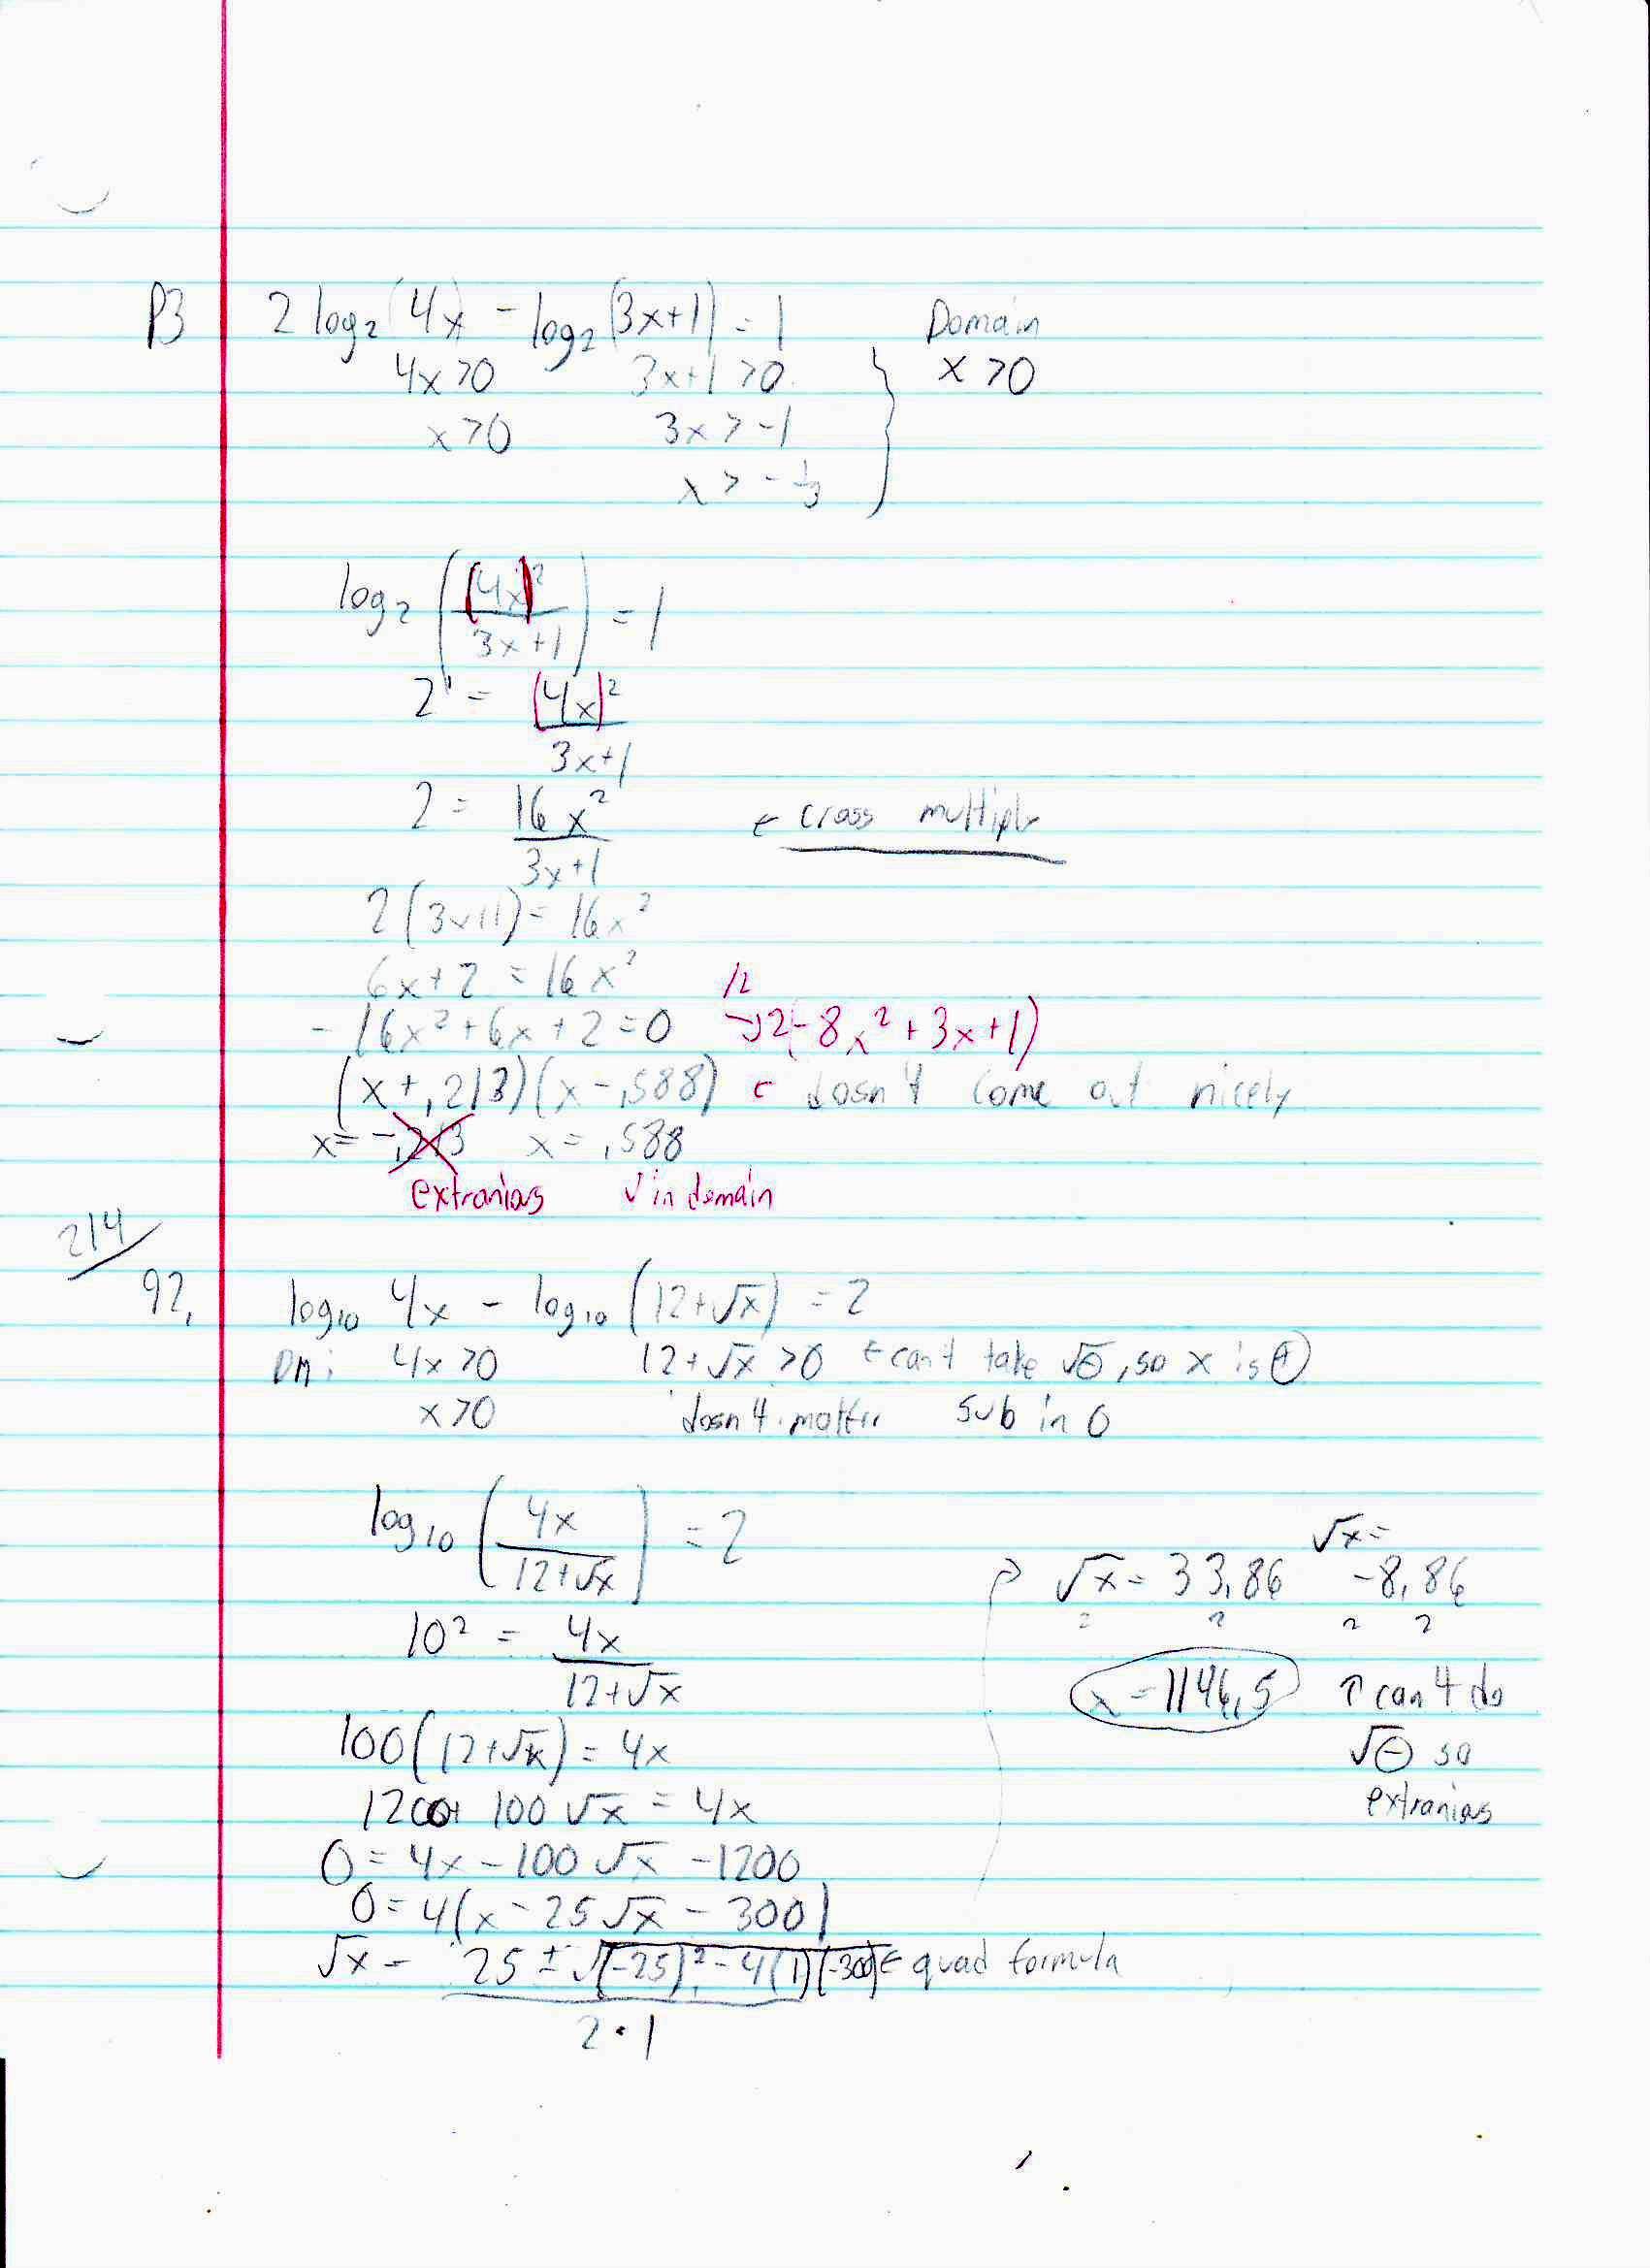 P3 2 log₂ (4x) - log₂ (3x+1) = 1 Domain
4x > 0 3x+1 > 0 x > 0
x > 0 3x > -1
x > -1/3
log₂ ((4x)²/(3x+1)) = 1
2¹ = (4x)²/(3x+1)
2 = 16x²/(3x+1) ← cross multiply
2(3x+1) = 16x²
6x+2 = 16x² /2
-16x²+6x+2=0 → 2(-8x²+3x+1)
(x+.213)(x-.588) ← dosn't come out nicely
x = -.213 x = .588
extranias ✓ in domain
214/
92. log₁₀ 4x - log₁₀ (12+√x) = 2
DM: 4x > 0 12+√x > 0 ← can't take √⊖, so x is ⊕
x > 0 dosn't matter sub in 0
log₁₀ (4x/(12+√x)) = 2
10² = 4x/(12+√x)
100(12+√x) = 4x
1200+ 100√x = 4x
0 = 4x - 100√x - 1200
0 = 4(x - 25√x - 300)
√x = (25 ± √((-25)² - 4(1)(-300)))/(2·1) ← quad formula
√x =
√x = 33.86 -8.86
2 2 2 2
x = 1146.5 ↑ can't do
√⊖ so
extranias